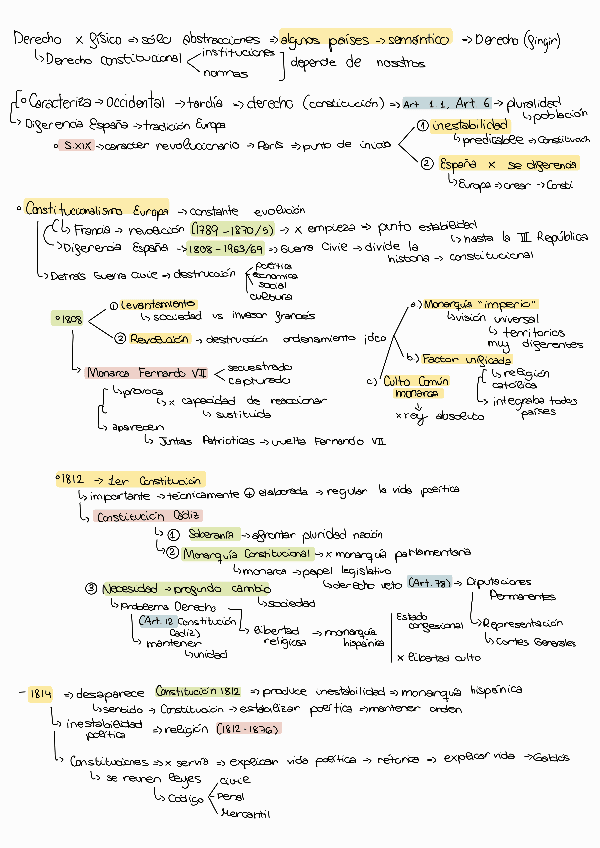 Derecho x físico → sólo abstracciones → algunos países → semántico → Derecho (fingir)
↳ Derecho constitucional < instituciones normas ] depende de nosotros
[ ° Caracteriza → Occidental → tardía → derecho (constitución) → Art 1.1, Art 6 → pluralidad
↳ población
↳ Diferencia España → tradición Europa
° S.XIX → caracter revolucionario → París → punto de inicio
① inestabilidad
↳ predicable → Constituach
② España x se diferencia
↳ Europa → crear → Consti
° Constitucionalismo Europa → constante evolución
↳ Francia → revolución (1789 - 1870/5) → x empieza → punto estabilidad
↳ hasta la III República
↳ Diferencia España → 1808 - 1963/69 → Guerra Civil → divide la
historia → constitucional
↳ Detrás Guerra Civil → destrucción < política
economica
social
cultura
° 1808
① Levantamiento
↳ sociedad vs invasor francés
② Revolución → destrucción ordenamiento jdco
a.) Monarquía "imperio"
↳ visión universal
↳ territorios
muy diferentes
b.) Factor unificada
↳ religión
católica
↳ integraba todos
países
c.) Culto Común
monarca
↓
x rey absoluto
↳ Monarca Fernando VII < secuestrado
capturado
↳ provoca
↳ x capacidad de reaccionar
↳ sustituida
↳ aparecen
↳ Juntas Patrioticas → vuelta Fernando VII
° 1812 → 1er Constitución
↳ importante → tecnicamente ⊕ elaborada → regular la vida política
↳ Constitución Cádiz
↳ ① Soberanía → afrontar pluridad nación
↳ ② Monarquía Constitucional → x monarquía parlamentaria
↳ monarca → papel legislativo
↳ derecho veto (Art. 78) → Diputaciones
Permanentes
↳ Representación
↳ Cortes Generales
③ Necesidad → profundo cambio
↳ sociedad
↳ Problema Derecho
(Art. 12 Constitución
Cadiz)
↳ mantener
↳ unidad
↳ libertad religiosa → monarquía hispánica
Estado
confesional
x libertad culto
- 1814 → desaparece Constitución 1812 → produce inestabilidad → monarquía hispánica
↳ sentido → Constitución → estabilizar política → mantener orden
↳ inestabilidad política → religión (1812 - 1876)
↳ Constituciones → x servía → explicar vida política → retórica → explicar vida → Galdós
↳ se reunen leyes
↳ Código < Civil
Penal
Mercantil